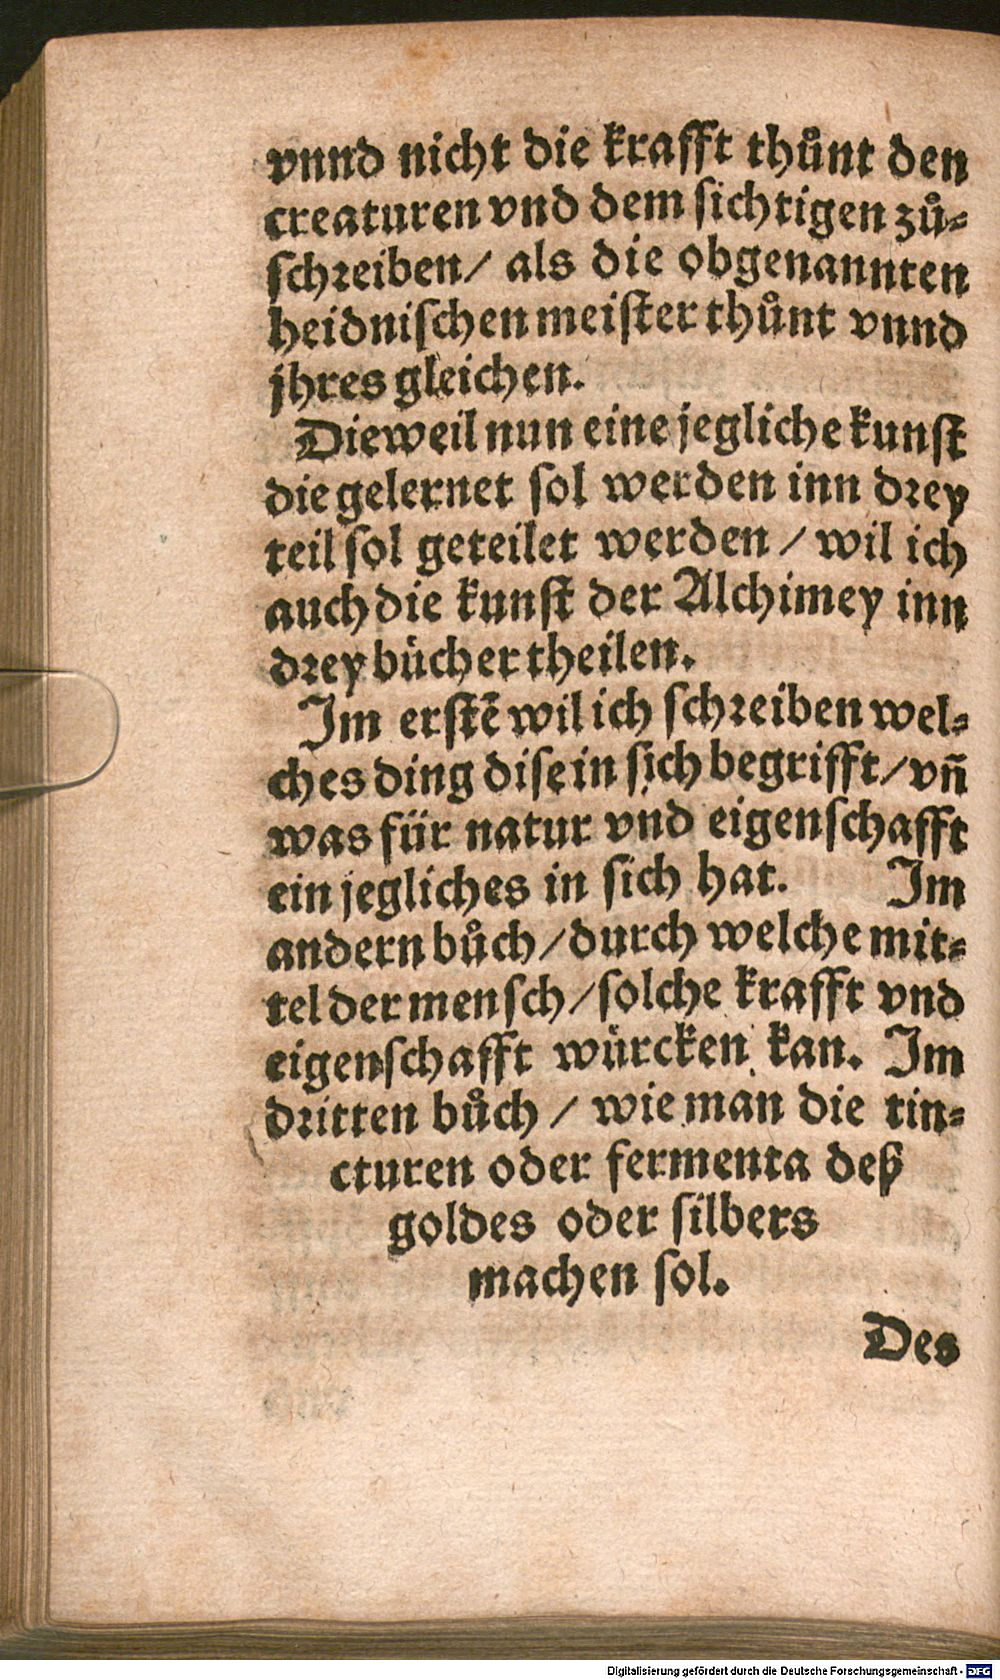 vnnd nicht die krafft thuͦnt den
creaturen vnd dem sichtigen zuͦ-
schreiben/ als die obgenannten
heidnischen meister thuͦnt vnnd
jhres gleichen.
Dieweil nun eine jegliche kunst
die gelernet sol werden inn drey
teil sol geteilet werden / wil ich
auch die kunst der Alchimey inn
drey buͤcher theilen.
Im erstē wil ich schreiben wel-
ches ding dise in sich begrifft/ vñ
was für natur vnd eigenschafft
ein jegliches in sich hat. Im
andern buͦch / durch welche mit-
tel der mensch / solche krafft vnd
eigenschafft würcken kan. Im
dritten buͦch / wie man die tin-
cturen oder fermenta deß
goldes oder silbers
machen sol.
Des
Digitalisierung gefördert durch die Deutsche Forschungsgemeinschaft - DFG